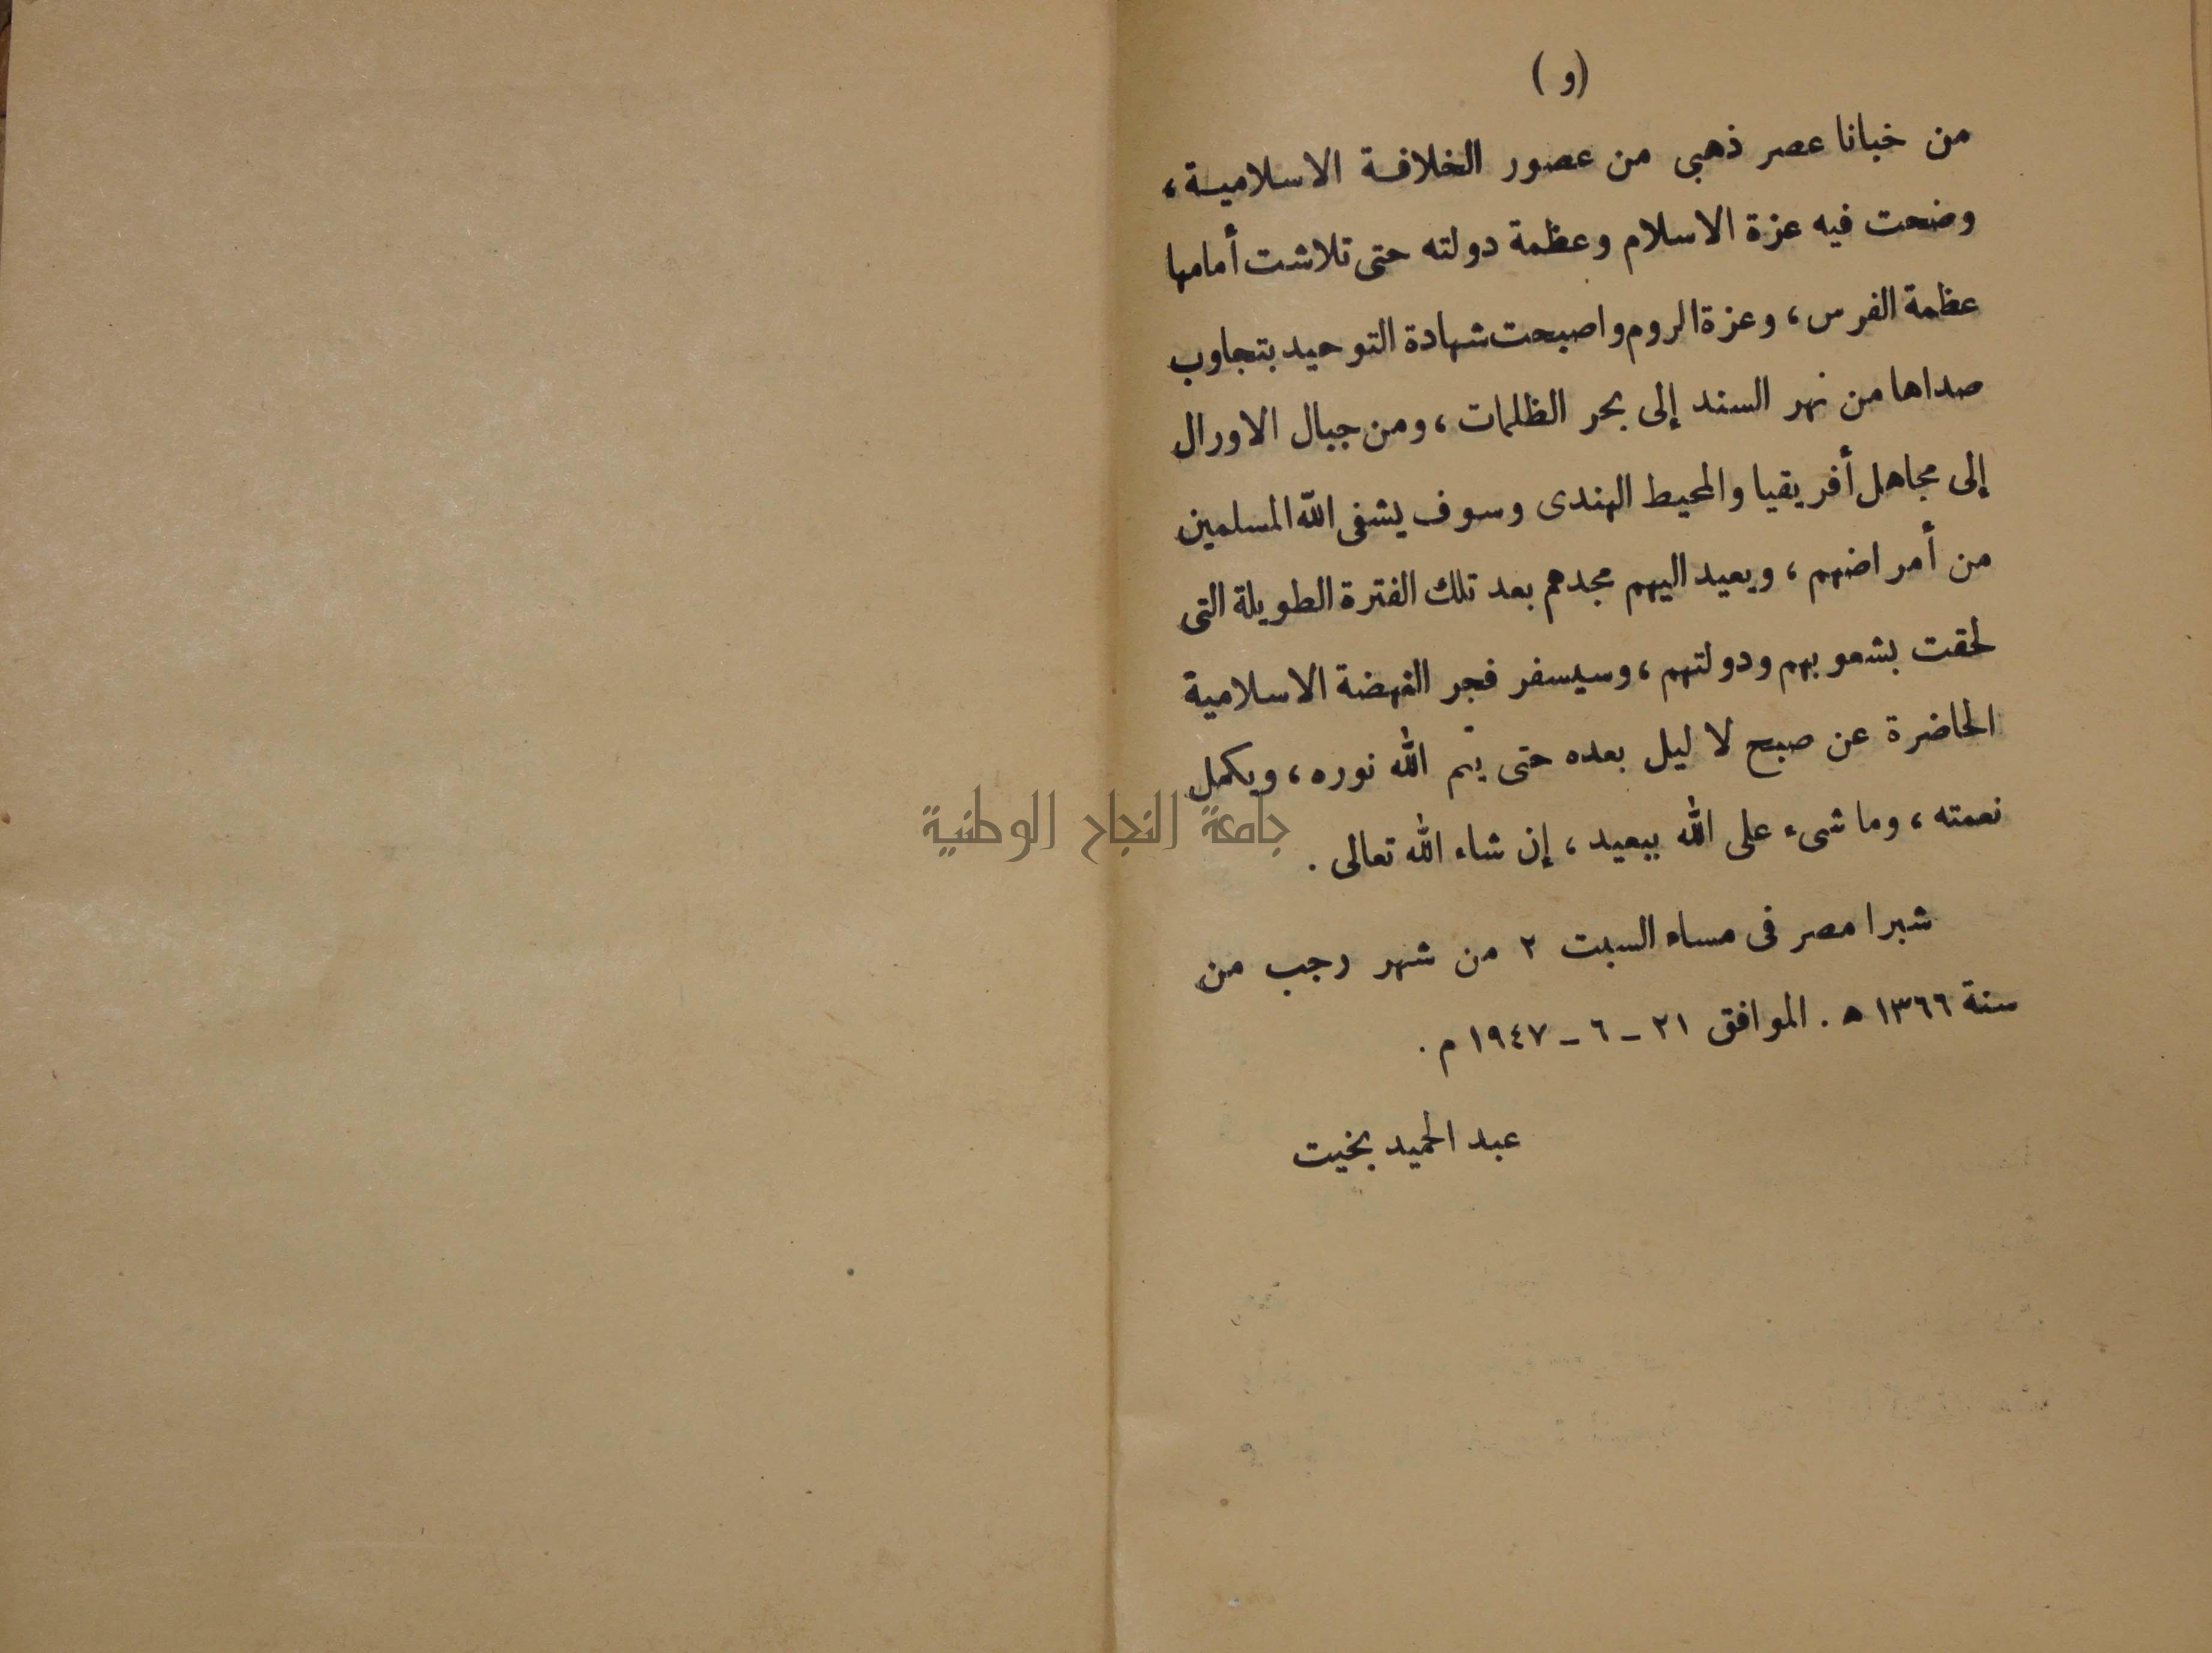 (و)
من خبانا عصر ذهبى من عصور الخلافة الاسلامية ،
وضحت فيه عزة الاسلام وعظمة دولته حتى تلاشت أمامها
عظمة الفرس ، وعزة الروم واصبحت شهادة التوحيد بتجاوب
صداها من نهر السند إلى بحر الظلمات ، ومن جبال الاورال
إلى مجاهل أفريقيا والمحيط الهندى وسوف يشفى الله المسلمين
من أمراضهم ، ويعيد اليهم مجدهم بعد تلك الفترة الطويلة التى
لحقت بشعوبهم ودولتهم ، وسيسفر فجر النهضة الاسلامية
الحاضرة عن صبح لا ليل بعده حتى يتم الله نوره ، ويكمل
نعمته ، وما شىء على الله ببعيد ، إن شاء الله تعالى .
شبرا مصر فى مساء السبت ٢ من شهر رجب من
سنة ١٣٦٦ ه . الموافق ٢١ – ٦ – ١٩٤٧ م .
عبد الحميد بخيت
جامعة النجاح الوطنية